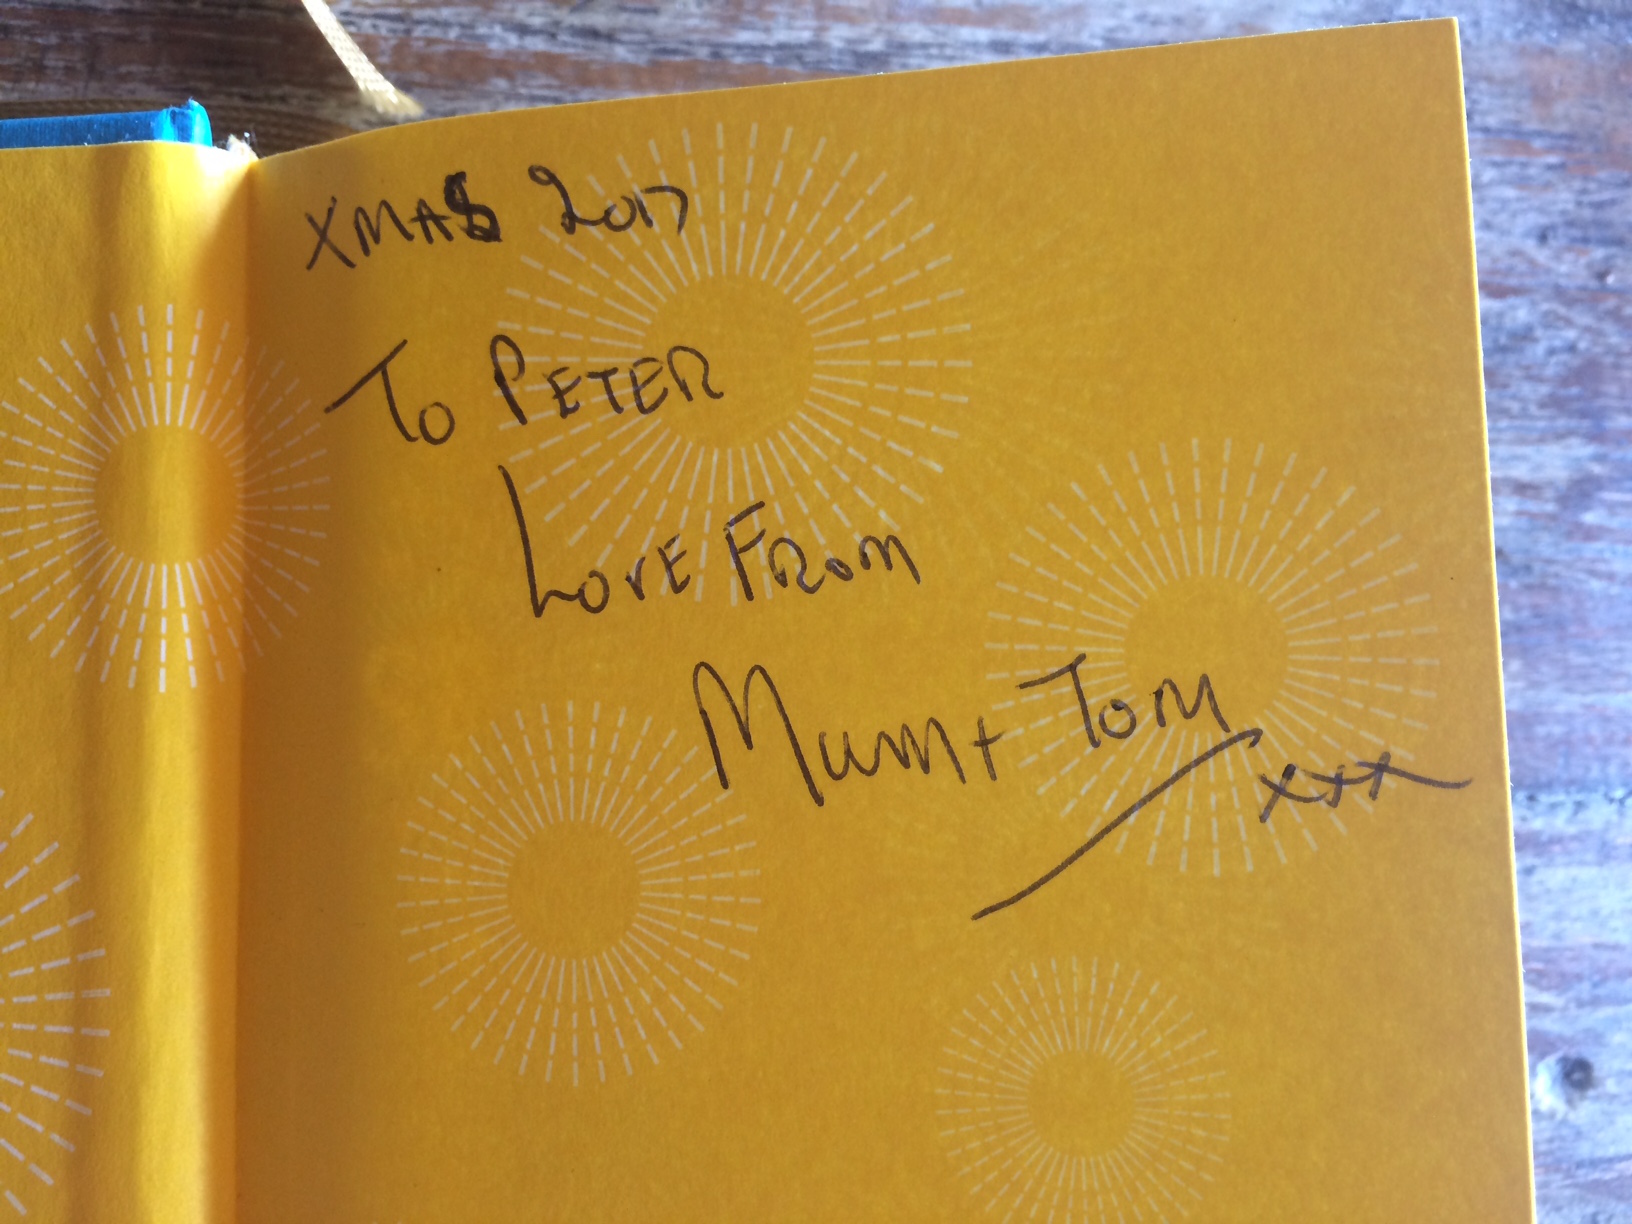 XMAS 2017
To PETER
LOVE FROM
Mum + Tom
xxx